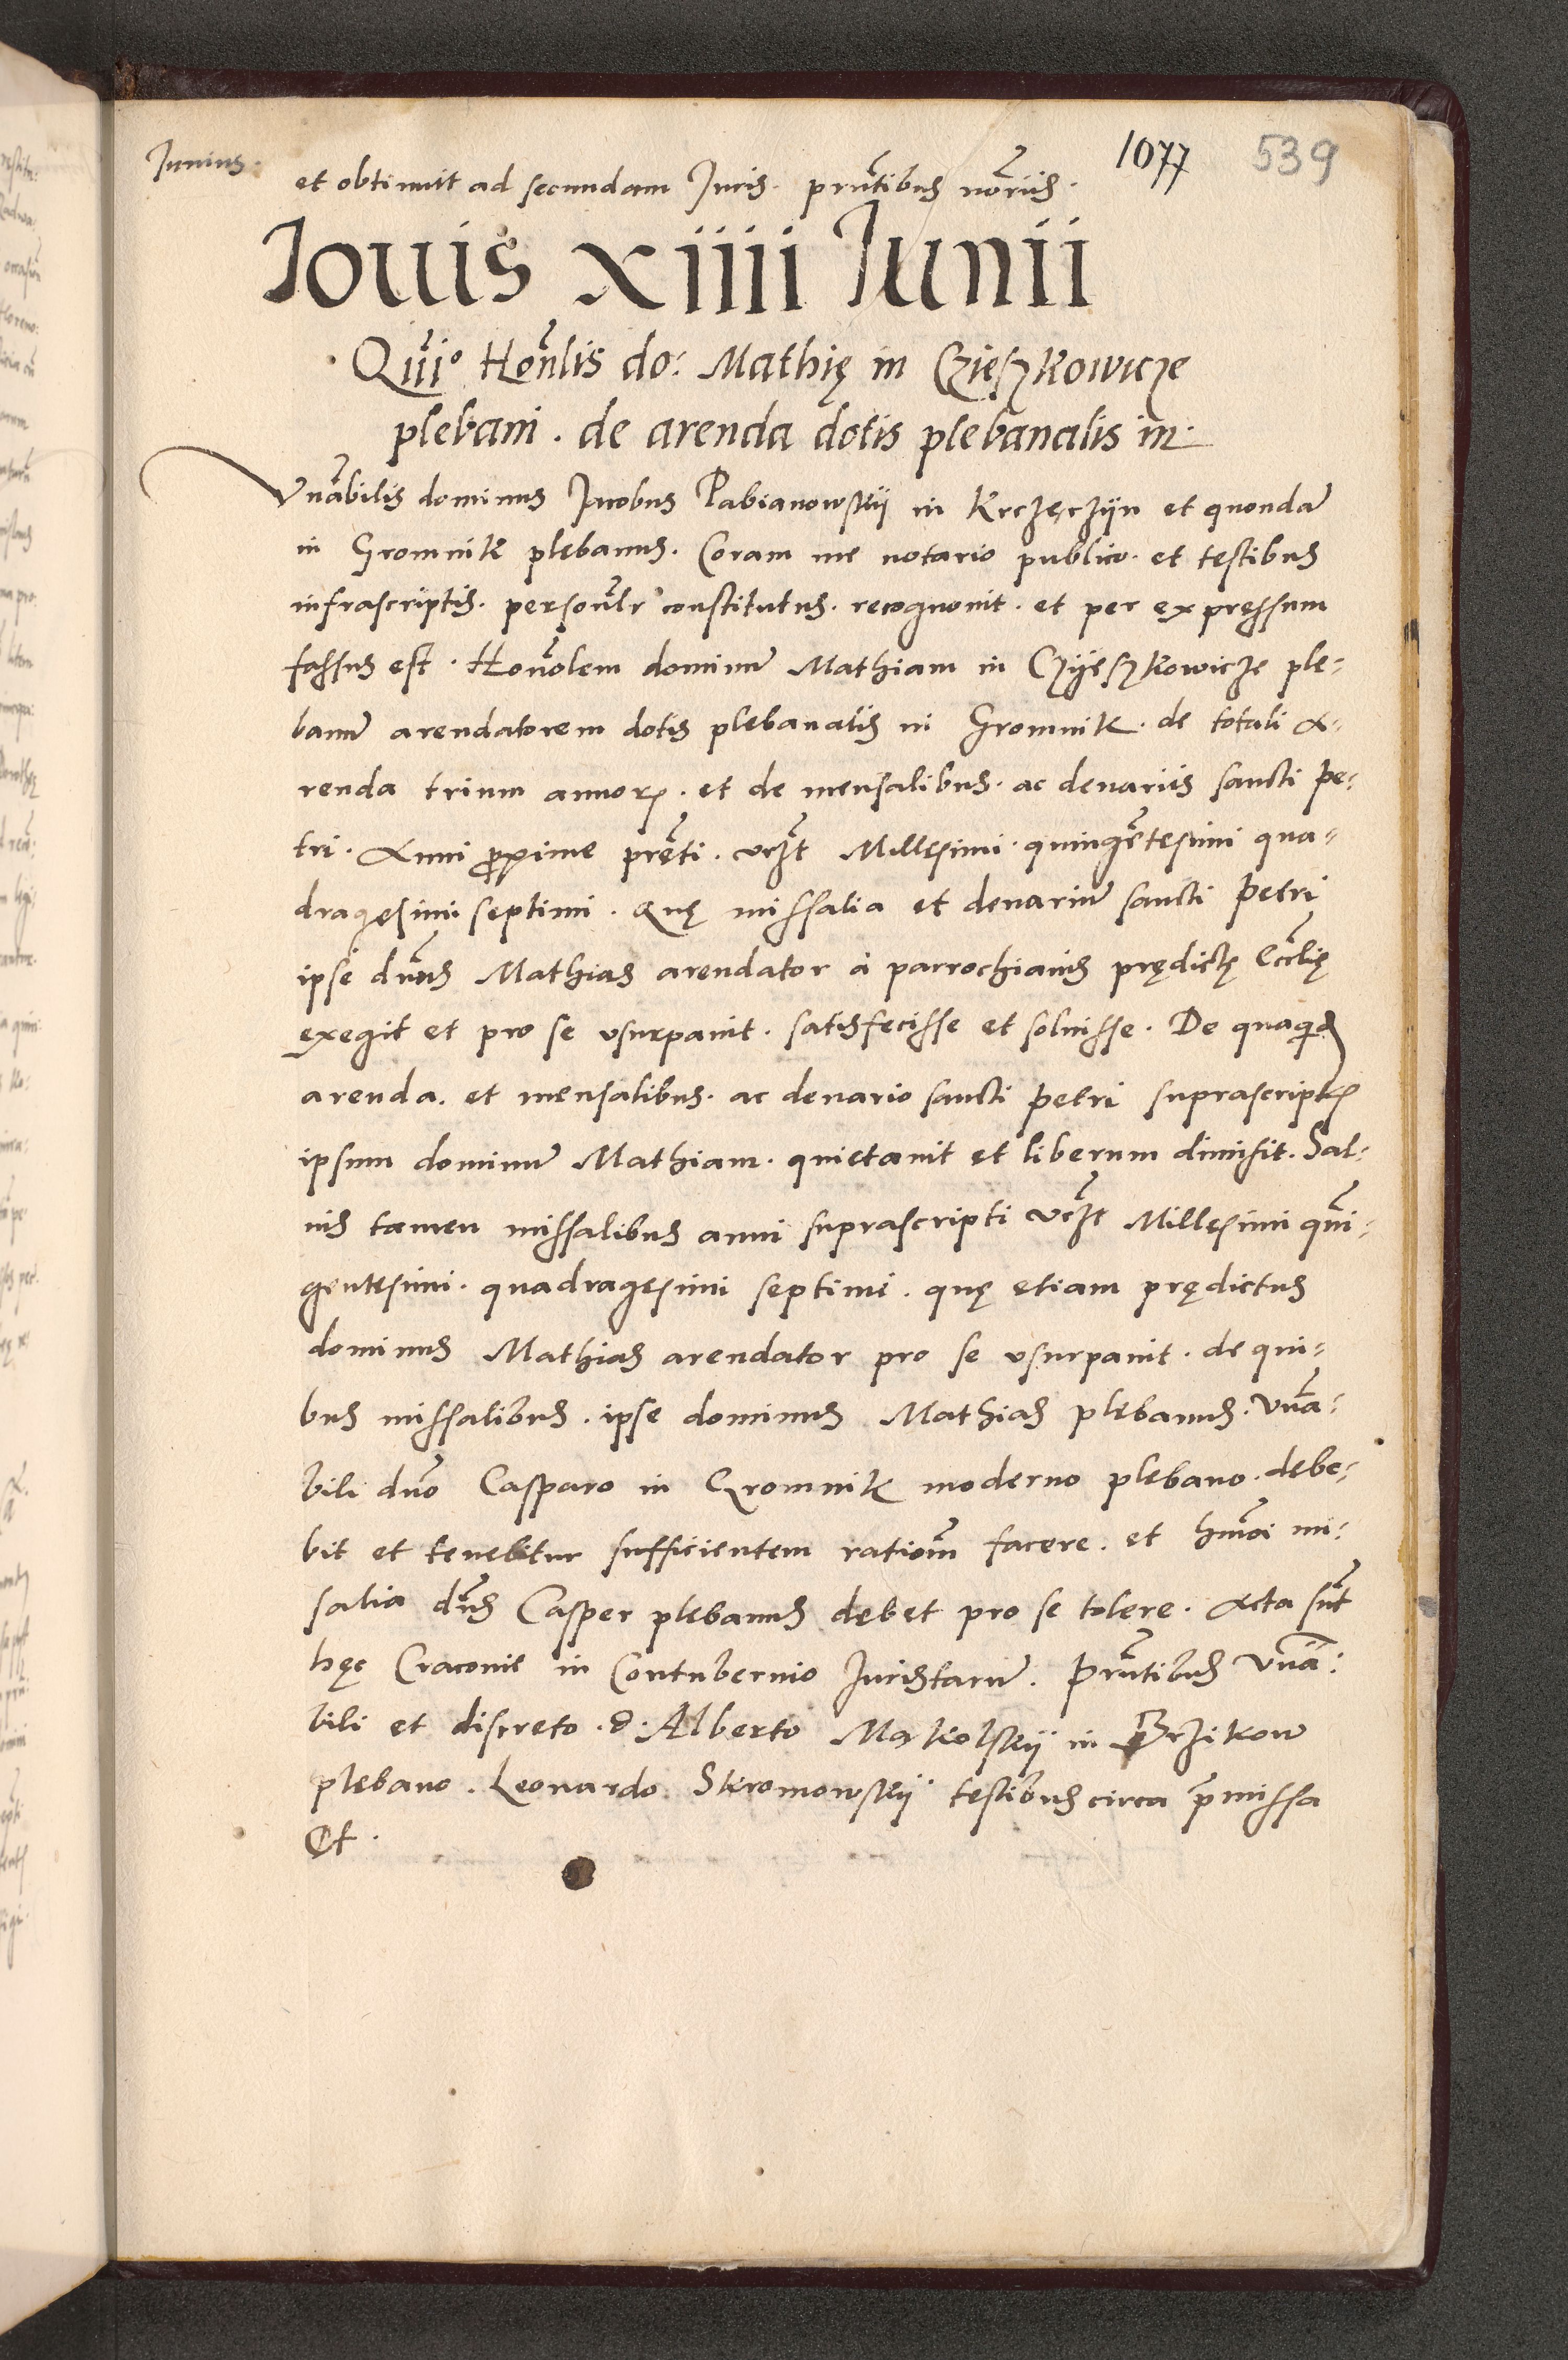 Junius.
1077 539
et obtinuit ad secundam Juris. prñtibus noriis.
Jouis xiiii Junii
Quio Honlis do: Mathię in Czieszkowicze
plebani. de arenda dotis plebanalis in.
Vnabilis dominus Jacobus Pabianowskij in Krczęczijn et quondã
in Gromnik plebanus. Coram me notario publico. et testibus
infrascriptis. personlr constitutus. recognouit. et per expressum
fassus est. Honolem dominũ Mathiam in Czijeszkowicze ple-
banũ arendatorem dotis plebanalis in Gromnik. de totali a-
renda trium annoꝝ. et de mensalibus. ac denariis sancti Pe-
tri. Anni proxime pręti. vczt Millęsimi. quingẽtesimi qua-
dragęsimi septimi. Quę missalia et denariũ sancti Petri
ipse dnus Mathias arendator a parrochianis prędictę Ecclię
exegit et pro se vsurpauit. satisfecisse et soluisse. De quaqid
arenda. et mensalibus. ac denario sancti Petri suprascriptꝭ
ipsum dominũ Mathiam. quietauit et liberum dimisit. Sal-
uis tamen missalibus anni suprascripti vczt Millęsimi qui-
gentesimi. quadragęsimi septimi. quę etiam prędictus
dominus Mathias arendator pro se vsurpauit. de qui-
bus missalibus. ipse dominus Mathias plebanus. Vnã-
bili dño Casparo in Gromnik moderno plebano. debe-
bit et tenebitur sufficientem rationẽ facere. et hmõi mi-
salia dñs Casper plebanus debet pro se tolere. Acta sũt
hęc Craconie in Contubernio Juristarũ. Prñtibus Vnã-
bili et discreto. d. Alberto Makolskij in Brzikow
plebano. Leonardo Skromowskij testibus circa p̃missa
Et.